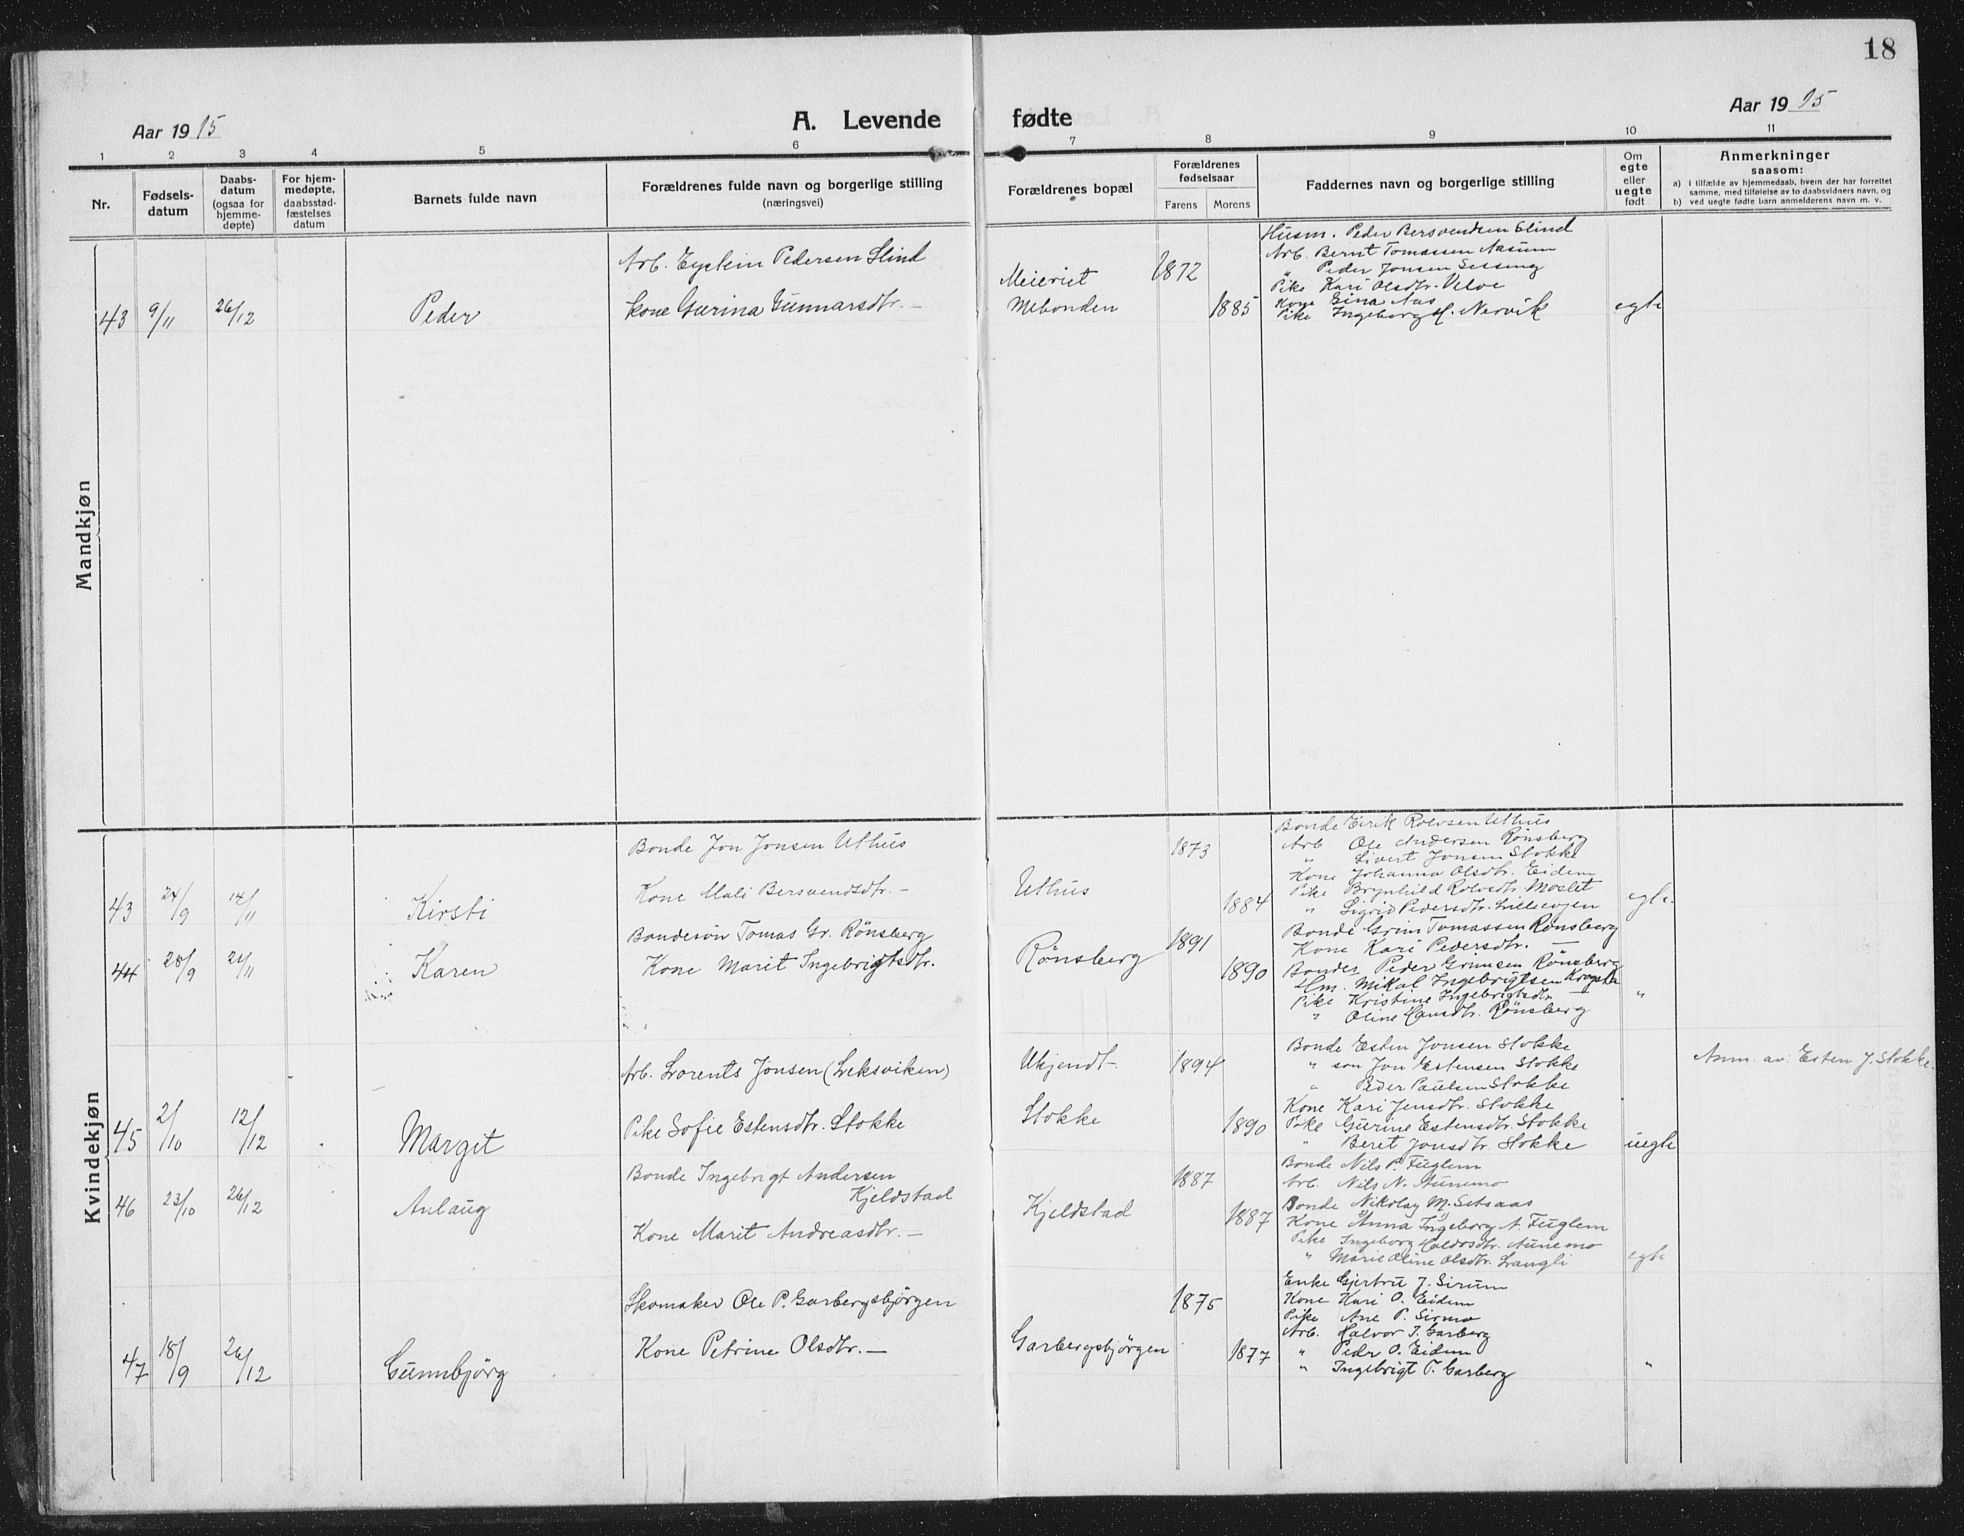 18
Aar 1915 A. Levende fødte Aar 1915
1 2 3 4 5 6 7 8 9 10 11
Nr.
Fødsels-
datum
Daabs-
datum
(ogsaa for
hjemme-
døpte)
For hjem-
medøpte,
daabsstad-
fæstelses
datum
Barnets fulde navn
Forældrenes fulde navn og borgerlige stilling
(næringsvei)
Forældrenes bopæl
Forældrenes
fødselsaar
Farens Morens
Faddernes navn og borgerlige stilling
Om
egte
eller
uegte
født
Anmerkninger
saasom:
a) i tilfælde av hjemmedaab, hvem der har forrettet
samme, med tilføielse av to daabsvidners navn, og
b) ved uegte fødte barn anmelderens navn m. v.
Mandkjøn
43 9/11 26/12 Peder
Arb. Eystein Pedersen Slind
Kone Gurina Gunnarsdtr. —
Meieriet
Mebonden
1872
1885
Husm. Peder Bersvendsen Slind
Arb. Bernt Tomassen Aasum
" Peder Jonsen Sesseng
Pike Kari Olsdtr. Velve
Kone Gina Aas
Pike Ingeborg H. Nervik
egte
Kvindekjøn
43 24/9 14/11 Kirsti
Bonde Jon Jonsen Uthus
Kone Mali Bersvendsdtr. —
Uthus
1873
1884
Bonde Eirik Rolvsen Uthus
Arb. Ole Andersen Rønsberg
" Sivert Jonsen Stokke
Kone Johanna Olsdtr. Eidem
Pike Brynhild Rolvsdtr. Moslet
" Sigrid Pedersdtr. Lilleevjen
egte.
44 28/9 21/11 Karen
Bondesøn Tomas Gr. Rønsberg
Kone Marit Ingebrigtsdtr.
" "
Rønsberg
1891
1890
Bonde Grim Tomassen Rønsberg
Kone Kari Pedersdtr. —
Bondes. Peder Grimsen Rønsberg
Hm. Mikal Ingebrigtsen
Pike Kristine Ingebrigtsdtr. —
" Oline Hansdtr. Rønsberg
"
45 2/10 12/12 Margit
Arb. Lorents Jonsen (Leksviken)
Pike Sofie Estensdtr. Stokke
Ukjendt
Stokke
1894
1890
Bonde Esten Jonsen Stokke
" søn Jon Estensen Stokke
" Peder Paulsen Stokke
Kone Kari Jensdtr. Stokke
Pike Gurine Estensdtr. Stokke
" Beret Jonsdtr. Stokke
uegte
Anm. av: Esten J. Stokke.
46 23/10 26/12 Anlaug
Bonde Ingebrigt Andersen
Kjeldstad
Kone Marit Andreasdtr. —
Kjeldstad
1887
1887
Bonde Nils P. Fuglem
Arb. Nils N. Aunemo
Bonde Nikolay M. Setsaas
Kone Anna Ingeborg A. Fuglem
Pike Ingeborg Haldosdtr. Aunemo
" Marie Oline Olsdtr. Langli
egte
47 18/9 26/12 Gunnbjørg
Skomaker Ole P. Garbergsbjørgen
Kone Petrine Olsdtr. —
Garbergsbjørgen
1875
1877
Enke Gjertru J. Sirum
Kone Kari O. Eidem
Pike Ane P. Sirmo
Arb. Halvor T. Garberg
" Peder O. Eidem
" Ingebrigt T. Garberg
"